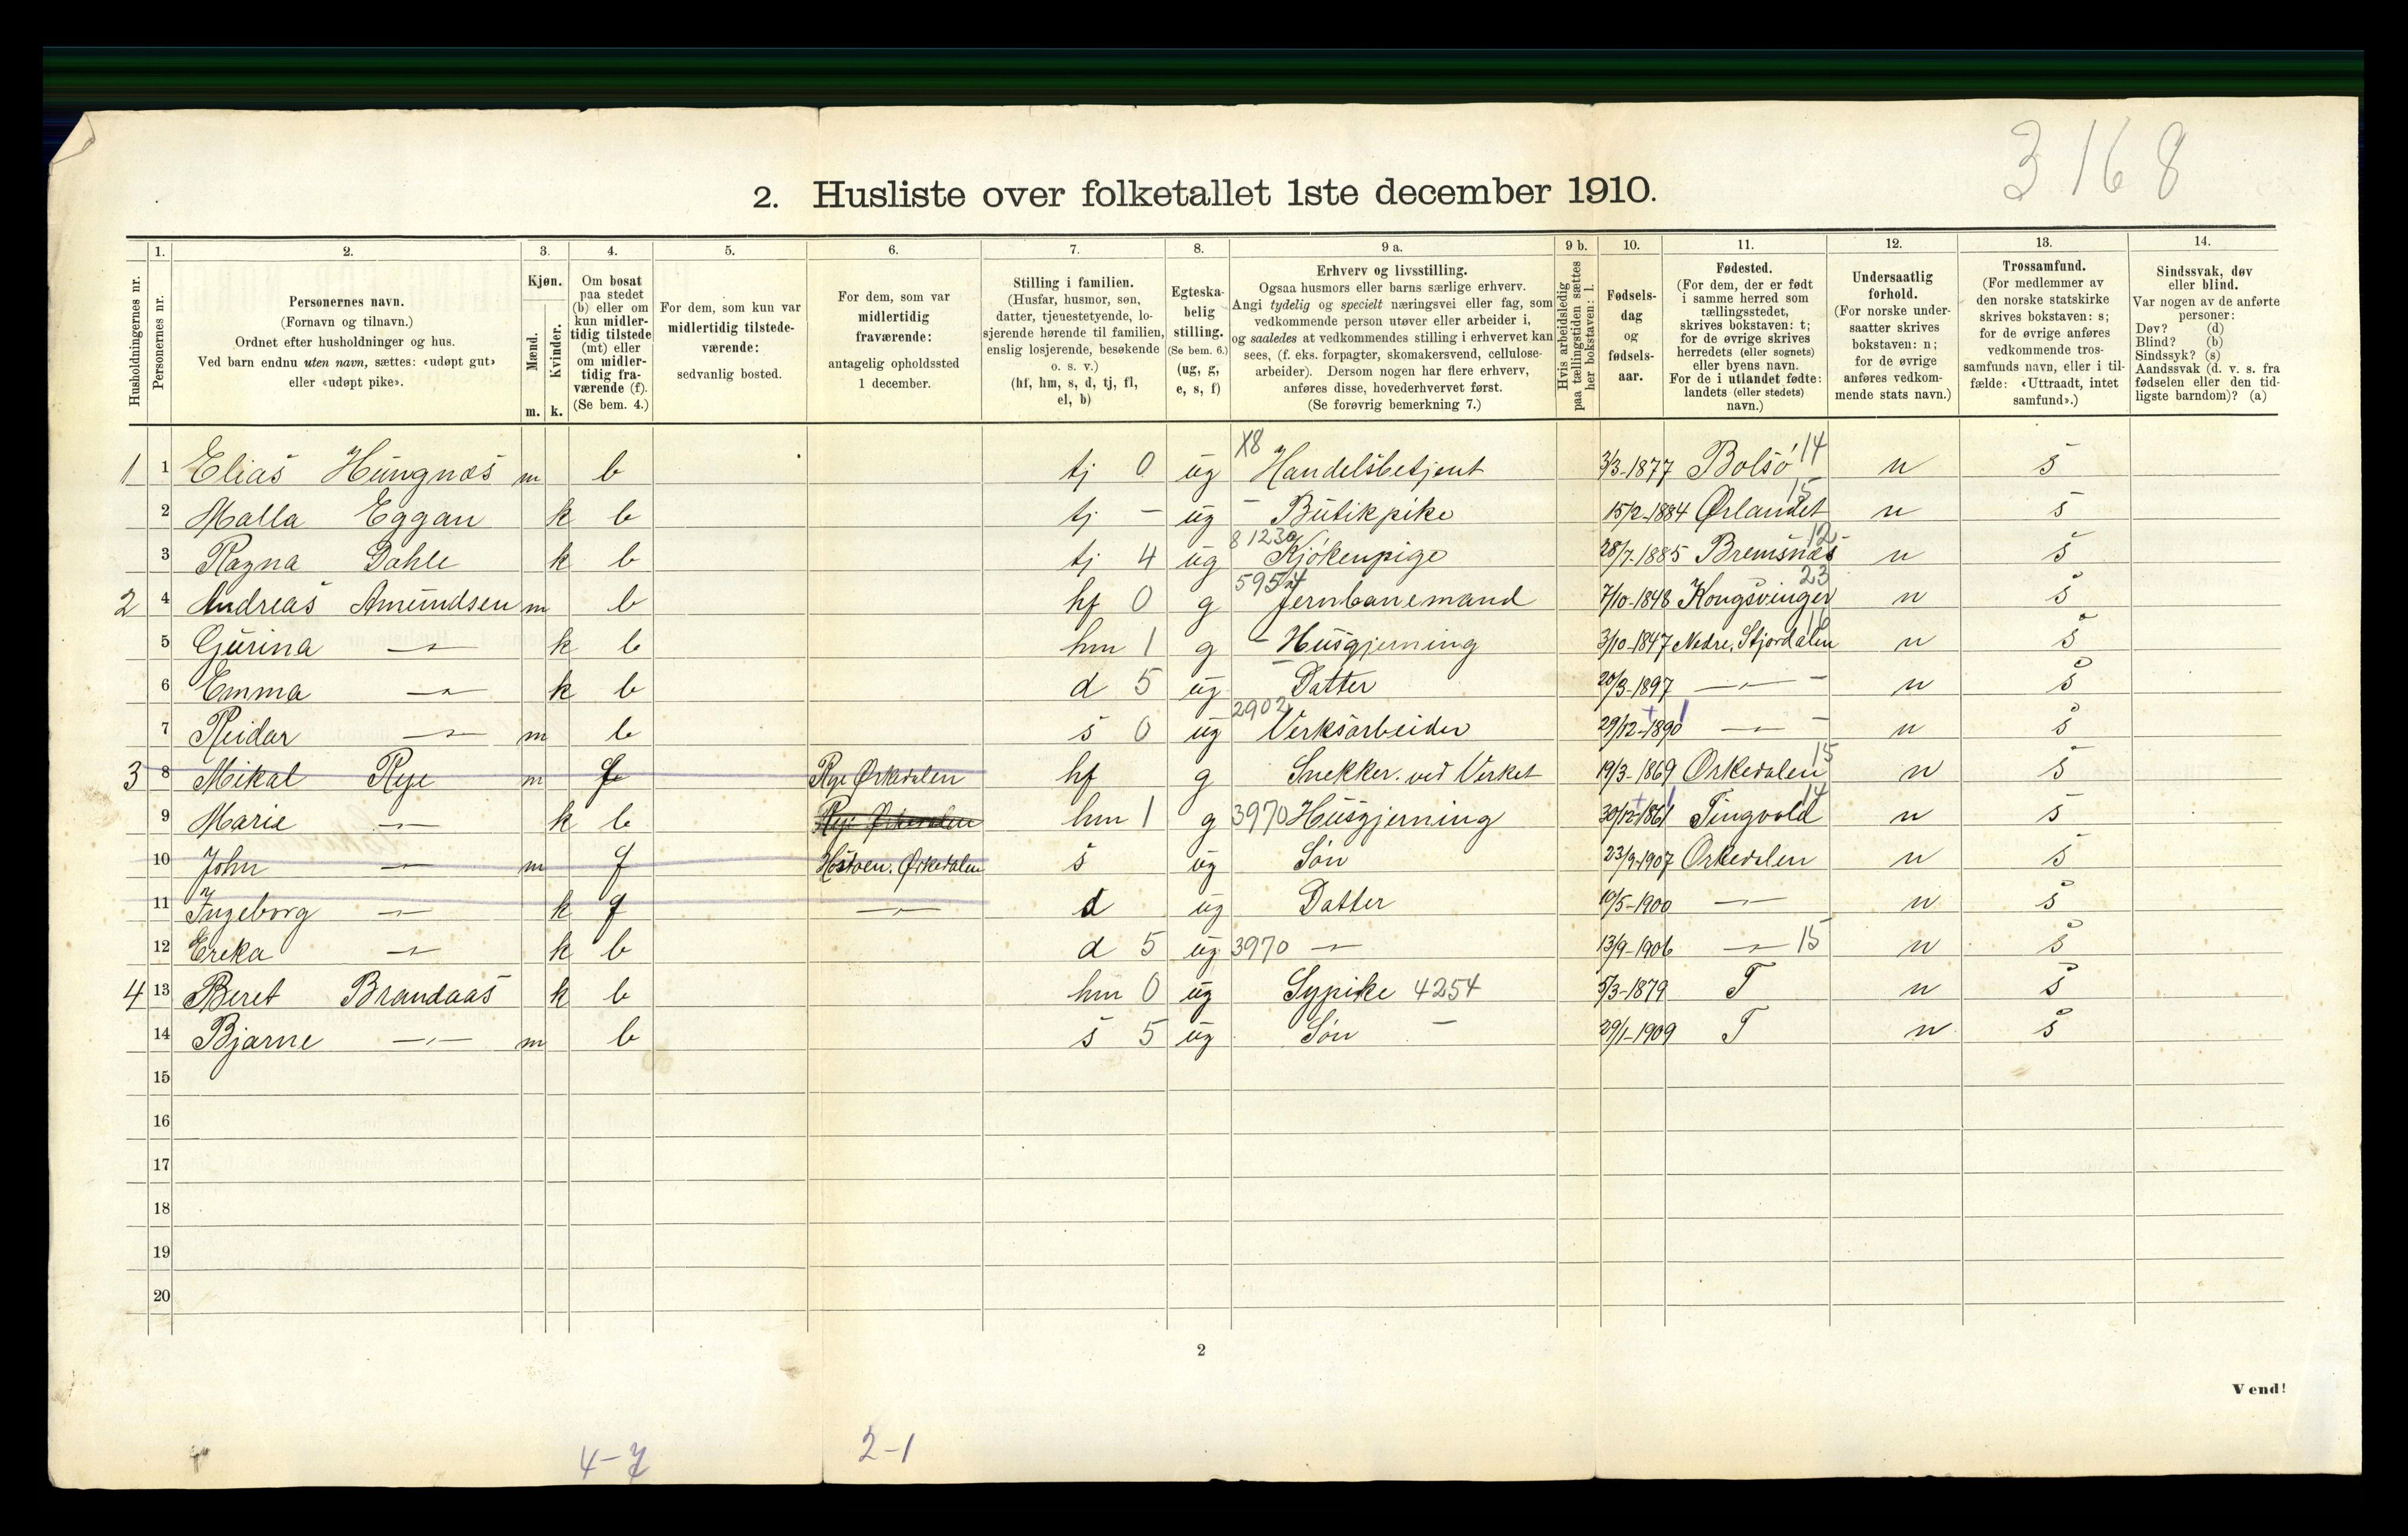 3168
2. Husliste over folketallet 1ste december 1910.
1. 2. 3. 4. 5. 6. 7. 8. 9 a. 9 b. 10. 11. 12. 13. 14.
Husholdningernes nr.
Personernes nr.
Personernes navn.
(Fornavn og tilnavn.)
Ordnet efter husholdninger og hus.
Ved barn endnu uten navn, sættes: «udøpt gut»
eller «udøpt pike».
Kjøn.
Mænd.
Kvinder.
m. k.
Om bosat
paa stedet
(b) eller om
kun midler-
tidig tilstede
(mt) eller
om midler-
tidig fra-
værende (f).
(Se bem. 4.)
For dem, som kun var
midlertidig tilstede-
værende:
sedvanlig bosted.
For dem, som var
midlertidig
fraværende:
antagelig opholdssted
1 december.
Stilling i familien.
(Husfar, husmor, søn,
datter, tjenestetyende, lo-
sjerende hørende til familien,
enslig losjerende, besøkende
o. s. v.)
(hf, hm, s, d, tj, fl,
el, b)
Egteska-
belig
stilling.
(Se bem. 6.)
(ug, g,
e, s, f)
Erhverv og livsstilling.
Ogsaa husmors eller barns særlige erhverv.
Angi tydelig og specielt næringsvei eller fag, som
vedkommende person utøver eller arbeider i,
og saaledes at vedkommendes stilling i erhvervet kan
sees, (f. eks. forpagter, skomakersvend, cellulose-
arbeider). Dersom nogen har flere erhverv,
anføres disse, hovederhvervet først.
(Se forøvrig bemerkning 7.)
Hvis arbeidsledig
paa tællingstiden sættes
her bokstaven: l.
Fødsels-
dag
og
fødsels-
aar.
Fødested.
(For dem, der er født
i samme herred som
tællingsstedet,
skrives bokstaven: t;
for de øvrige skrives
herredets (eller sognets)
eller byens navn.
For de i utlandet fødte:
landets (eller stedets)
navn.)
Undersaatlig
forhold.
(For norske under-
saatter skrives
bokstaven: n;
for de øvrige
anføres vedkom-
mende stats navn.)
Trossamfund.
(For medlemmer av
den norske statskirke
skrives bokstaven: s;
for de øvrige anføres
vedkommende tros-
samfunds navn, eller i til-
fælde: «Uttraadt, intet
samfund».)
Sindssvak, døv
eller blind.
Var nogen av de anførte
personer:
Døv? (d)
Blind? (b)
Sindssyk? (s)
Aandssvak (d. v. s. fra
fødselen eller den tid-
ligste barndom)? (a)
1 1 Elias Hungnæs m b tj 0 ug X8 Handelsbetjent 3/3-1877 Bolsö 14 n s
2 Malla Eggan k b tj - ug - Butikpike 15/2-1884 Ørlandet 15 n s
3 Ragna Dahle k b tj 4 ug 8 1230 Kjökenpige 28/7-1885 Bremsnæs 12 n s
2 4 Andreas Amundsen m b hf 0 g 5954 Jernbanemand 7/10-1848 Kongsvinger 23 n s
5 Gurina -"- k b hm 1 g - Husgjerning 3/10-1847 Nedre. Stjørdalen n s
6 Emma -"- k b d 5 ug - Datter 20/3-1897 -"- - n s
7 Reidar -"- m b s 0 ug 2902 Verksarbeider 29/12-1890 -"- - n s
3 8 Mikal Rye m f Rye Ørkedalen hf g Snekker. ved Verket 19/3-1869 Orkedalen 15 n s
9 Marie -"- k b Rye Ørkedalen hm 1 g 3970 Husgjerning 30/12-1861 Tingvold 14 n s
10 John -"- m f Hostoen. Ørkedalen s ug Sön 23/9-1907 Orkedalen n s
11 Ingeborg -"- k f -"- d ug Datter 10/5-1900 -"- n s
12 Ereka -"- k b d 5 ug 3970 -"- 13/9-1906 -"- 15 n s
4 13 Beret Brandaas k b hm 0 ug Sypike 4254 5/3-1879 T n s
14 Bjarne -"- m b s 5 ug Sön - 29/1-1909 T n s
15
16
17
18
19
20
2
Vend!
4-7 2-1